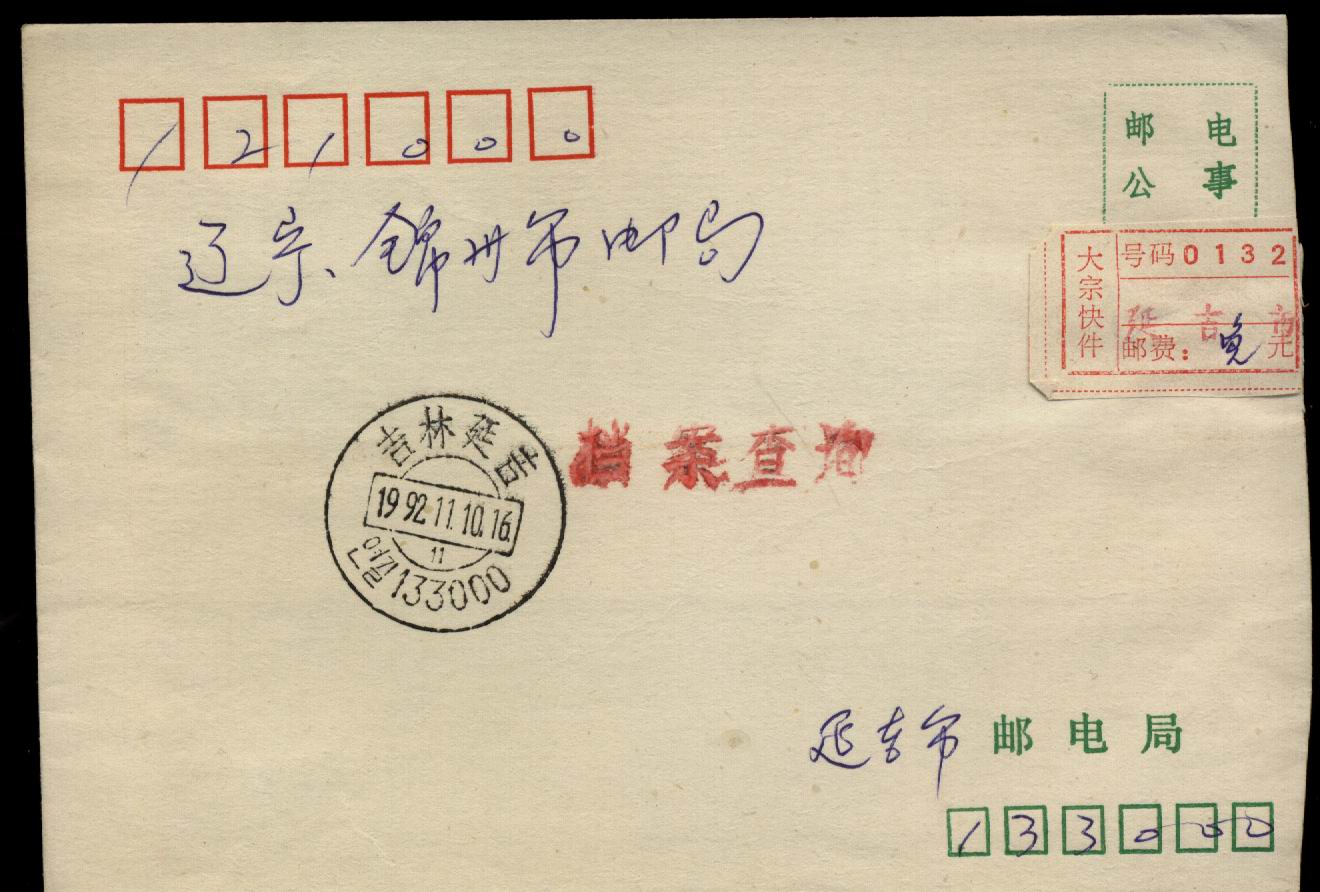 121000
邮电
公事
辽宁、锦州市邮局
大宗快件
号码0132
延吉市
邮费：免元
吉林延吉
1992.11.10.16
11
연길133000
档案查询
延吉市邮电局
133000